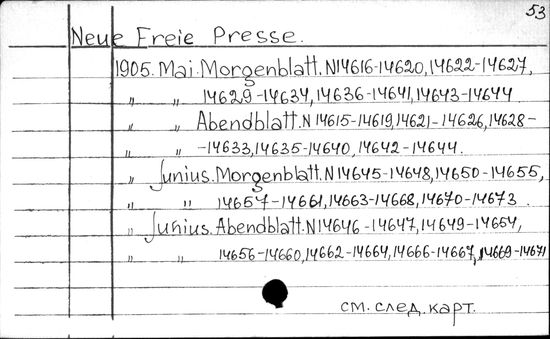 53
Neue Freie Presse.
1905. Mai. Morgenblatt. N14616-14620, 14622-14627,
〃 〃 14629-14634, 14636-14641, 14643-14644
〃 〃 Abendblatt. N 14615-14619, 14621-14626, 14628-
〃 〃 -14633, 14635-14640, 14642-14644.
〃 Junius. Morgenblatt. N14645-14648, 14650-14655,
〃 〃 14657-14661, 14663-14668, 14670-14673.
〃 Junius. Abendblatt. N14646-14647, 14649-14654,
〃 〃 14656-14660, 14662-14664, 14666-14667, 14669-14671
см. след. карт.